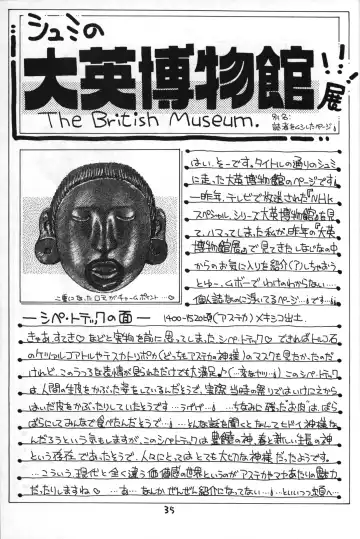 シュミの
大英博物館展!!!
The British Museum.
別名:
読者をムシしたページ♪
はい、そーです。タイトルの通りのシュミ
に走った大英博物館のページです
一昨年、テレビで放送された『NHK
スペシャル、シリーズ大英博物館』を見
て、ハマってしまった私が、昨年の『大英
博物館展』で見てきたしなものの中
からのお気に入りを紹介(ア)しちゃおう
とゆー、ムボーでわけのわからない…
個人誌なのに浮いてるページ…♪です…♪
二重になった口元がチャームポイント…♡
―シペ・トテックの面―
1400-1520頃(アステカ)メキシコ出土.
きゃあ、すてき♡などと実物を前に思ってしまった、シペ・トテック♡できればトルコ石
のケツァルコアトルやテスカトリポカ(どっちもアステカの神様)のマスクも見たかったのだ
けれど、このうつろな表情が見られただけでも大満足♪
このシペ・トテック
は、人間の生皮をかぶった姿をしているんだそうで、実際、当時の祭りではいけにえから
はいだ皮をかぶったりしていたそうです…
ちなみに残ったお肉は、ばら
ばらにしてみんなで食べたんだそうで…♪
どんな話を聞くとなんてヒドイ神様な
んだろうという気もしますが、このシペ・トテックは農耕の神、春と新しい生長の神
という存在であったそうで、人々にとってはとても大切な神様だったようです。
…こういう、現代と全く違う価値感の世界というのがアステカやマヤあたりの魅力
だったりしますね♡
なんかぜんぜん紹介になってない…♪といいつつ次頁へ…
35